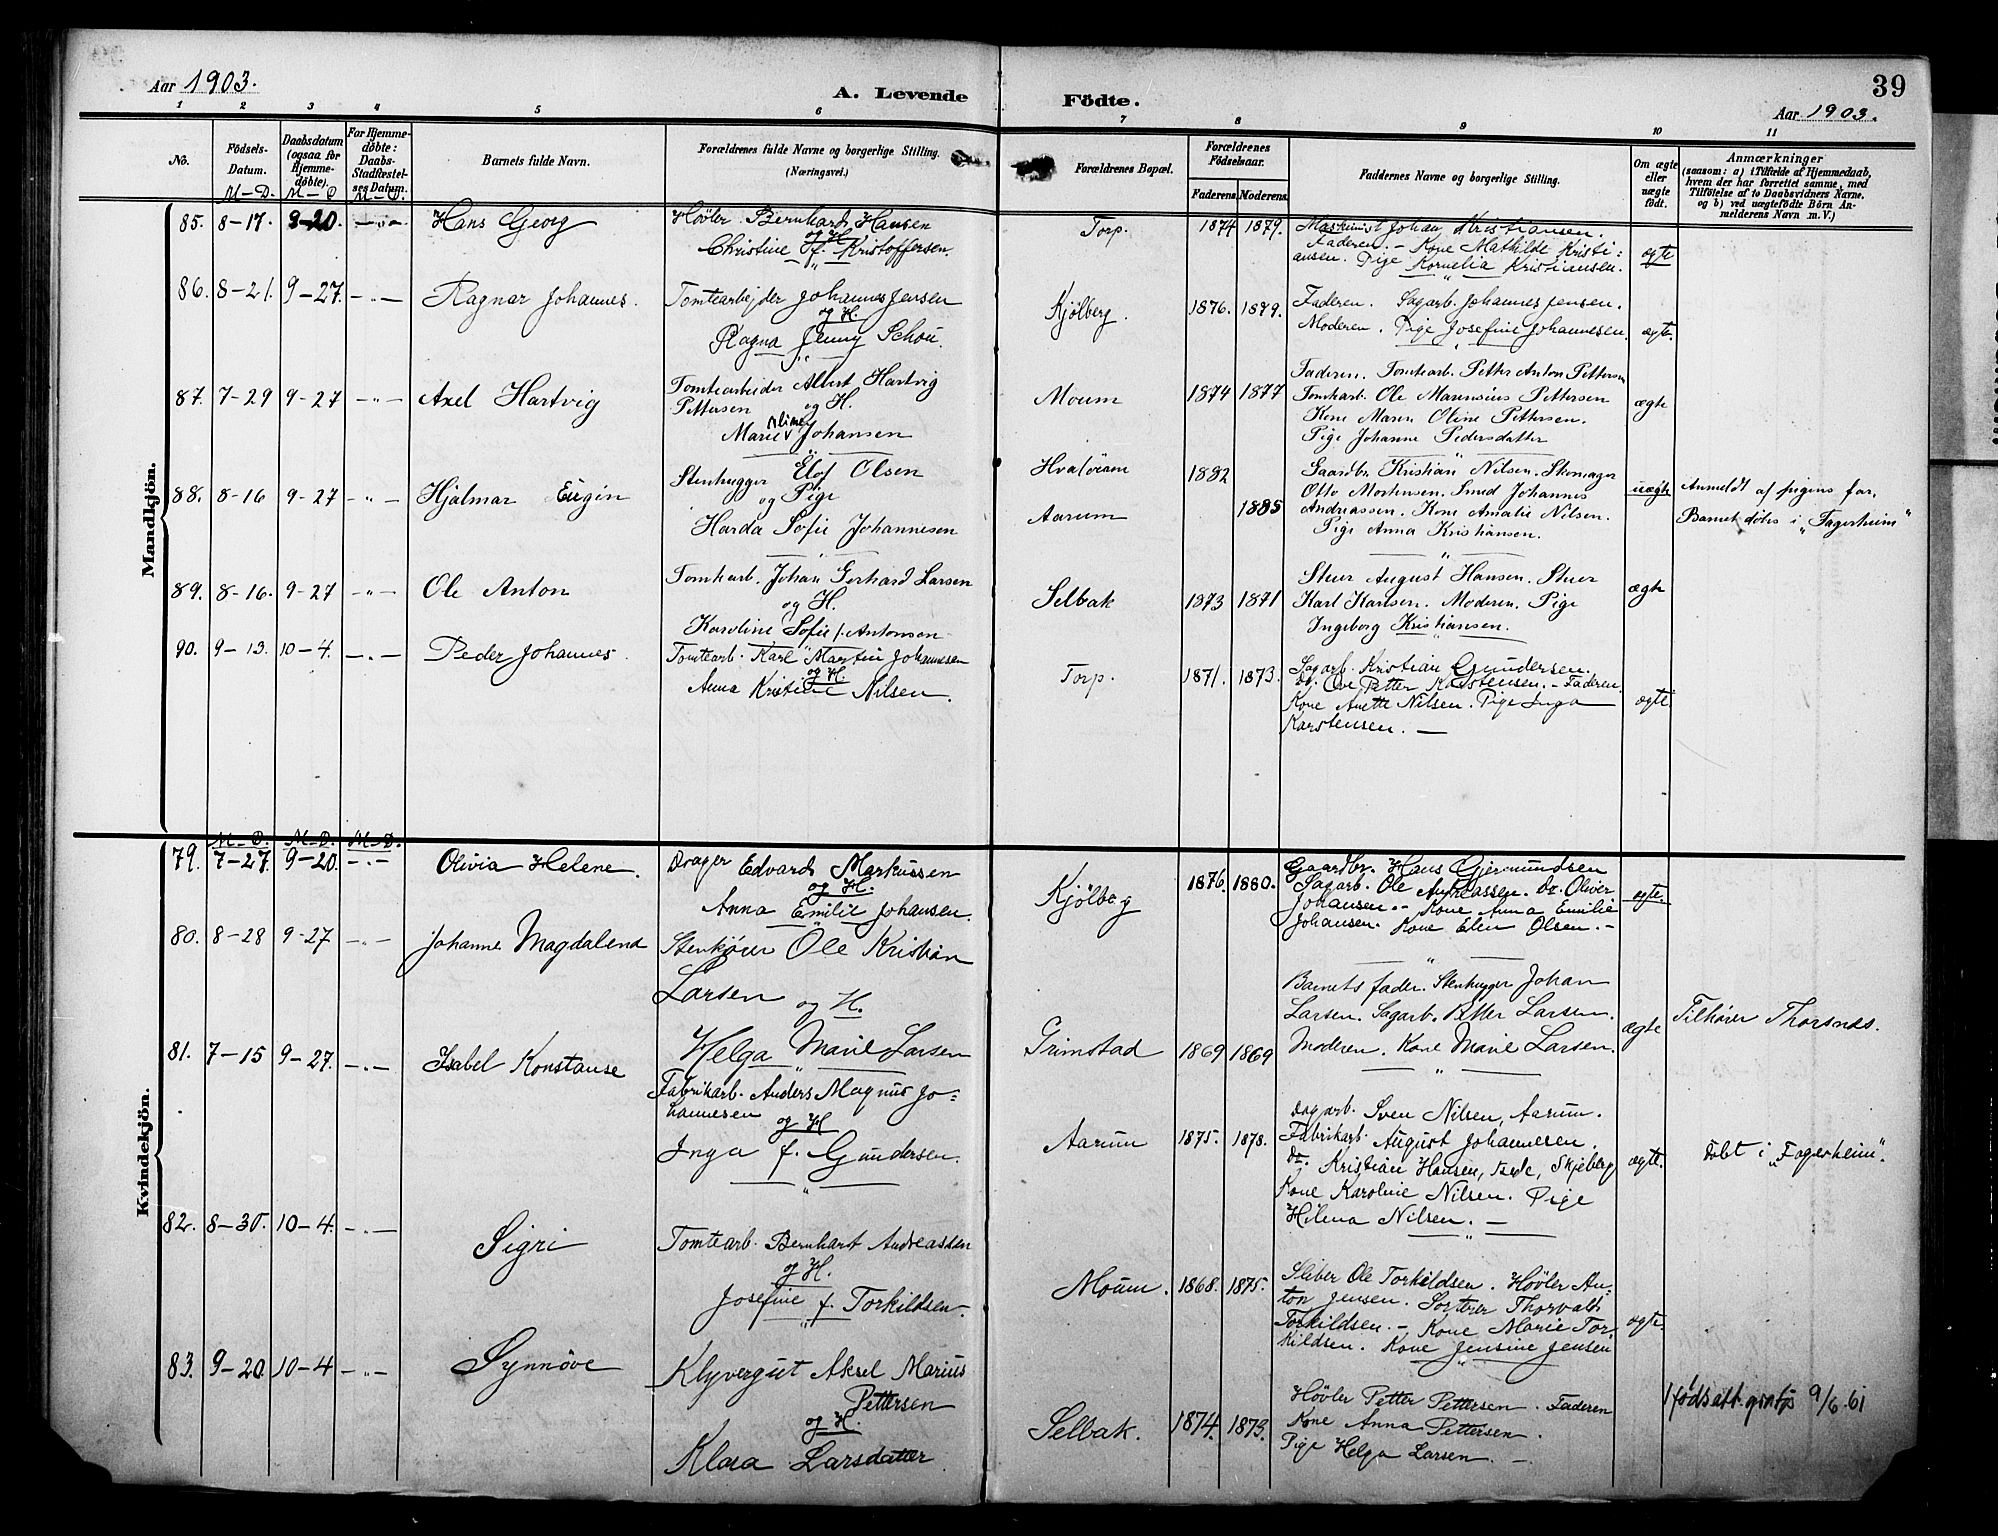 39
Aar 1903.
A. Levende Födte.
Aar 1903.
1 2 3 4 5 6 7 8 9 10 11
No.
Födsels-Datum.
Daabsdatum (ogsaa for Hjemmedöbte).
For Hjemmedöbte: Daabs-Stadfæstelses Datum.
Barnets fulde Navn.
Forældrenes fulde Navne og borgerlige Stilling.
(Næringsvei.)
Forældrenes Bopæl.
Forældrenes Födselsaar.
Faderens. Moderens.
Faddernes Navne og borgerlige Stilling.
Om ægte eller uægte födt.
Anmærkninger
(saasom: a) i Tilfælde af Hjemmedaab, hvem der har forrettet samme, med Tilföielse af to Daabsvidners Navne, og b) ved uægtefödte Börn Anmelderens Navn m. V.)
M–D. M–D M–D.
Mandkjön.
85. 8–17. 9–20. –"– Hans Georg
Høvler Bernhard Hansen
og H.
Christine f. Kristoffersen.
Torp. 1874 1879.
Maskinist Johan Kristiansen.
Faderen. – Kone Mathilde Kristi=
ansen. Pige Kornelia Kristiansen.
ægte
86. 8–21. 9–27. –"– Ragnar Johannes.
Tomtearbejder Johannes Jensen
og H.
Ragna Jenny Schou.
Kjølberg. 1876. 1879.
Faderen. Sagarb. Johannes Jensen.
Moderen. Pige Josefine Johannesen.
ægte.
87. 7–29 9–27 –"– Axel Hartvig
Tomtearbeider Albert Hartvig
Pettersen og H.
Marie Oline Johansen
Moum 1874 1877
Faderen. Tomtearb. Petter Anton Pettersen
Tomtearb. Ole Marensius Pettersen
Kone Maren Oline Pettersen.
Pige Johanne Pedersdatter
ægte
88. 8–16 9–27 –"– Hjalmar Eugin
Stenhugger Elof Olsen
og Pige
Harda Sofie Johannesen
Hvalöerne 1882
Aarum 1885
Gaardbr. Kristian Nilsen. Skomager
Otto Mortensen. Smed Johannes
Andreassen. Kone Amalie Nilsen.
Pige Anna Kristiansen.
uægte
Anmeldt af pigens far.
Barnet døbt i "Fagerheim"
89. 8–16. 9–27 –"– Ole Anton
Tomtearb. Johan Gerhard Larsen
og H.
Karoline Sofie f. Antonsen
Selbak 1873 1871
Stuer August Hansen. Stuer
Karl Hansen. Moderen. Pige
Ingeborg Kristiansen.
ægte
90. 9–13. 10–4. –"– Peder Johannes.
Tomtearb. Karl Martin Johannesen
og H.
Anna Kristine Nilsen.
Torp. 1871. 1873.
Sagarb. Kristian Gundersen.
Do. Ole Petter Karstensen. – Faderen.
Kone Anette Nilsen. Pige Inga
Karstensen. –
ægte.
Kvindekjön.
M–D. M–D. M–D.
79. 7–27. 9–20. –"– Olivia Helene.
Drager Edvard Markussen
og H.
Anna Emilie Johansen.
Kjølberg 1876. 1880.
Gaardbr. Hans Gjermundsen
Sagarb. Ole Andreassen. Do. Oliver
Johansen. – Kone Anna Emilie
Johansen. Kone Elen Olsen. –
ægte.
80. 8–28 9–27 –"– Johanne Magdalena
Stenkører Ole Kristian
Larsen og H.
Helga Marie Larsen
Grimstad 1869 1869
Barnets fader. Stenhugger Johan
Larsen. Sagarb. Petter Larsen.
Moderen. Kone Marie Larsen.
ægte
Tilhører Thorsnes.
81. 7–15 9–27. –"– Isabel Konstanse
Fabrikarb. Anders Magnus Jo=
hannesen
og H
Inga f. Gundersen.
Aarum 1875. 1878.
Dagarb. Sven Nilsen, Aarum.
Fabrikarb. August Johannesen.
Do. Kristian Hansen, Skjeberg
Kone Karoline Nilsen. Pige
Hilena Nilsen. –
ægte.
Døbt i "Fagerheim".
82. 8–30. 10–4. –"– Sigri
Tomtearb. Bernhart Andreassen
og H.
Josefine f. Torkildsen.
Moum. 1868. 1875.
Sliber Ole Torkildsen. Høvler An=
ton Jensen. Sorterer Thorvald
Torkildsen. – Kone Marie Tor=
kildsen. Kone Jensine Jensen
ægte.
83. 9–20. 10–4 –"– Synnöve
Klyvergut Aksel Marius
Pettersen
og H.
Klara Larsdatter
Selbak. 1874. 1873.
Høvler Petter Pettersen. Faderen
Kone Anna Pettersen.
Pige Helga Larsen. –
1 födsatt. gratis 9/6.61